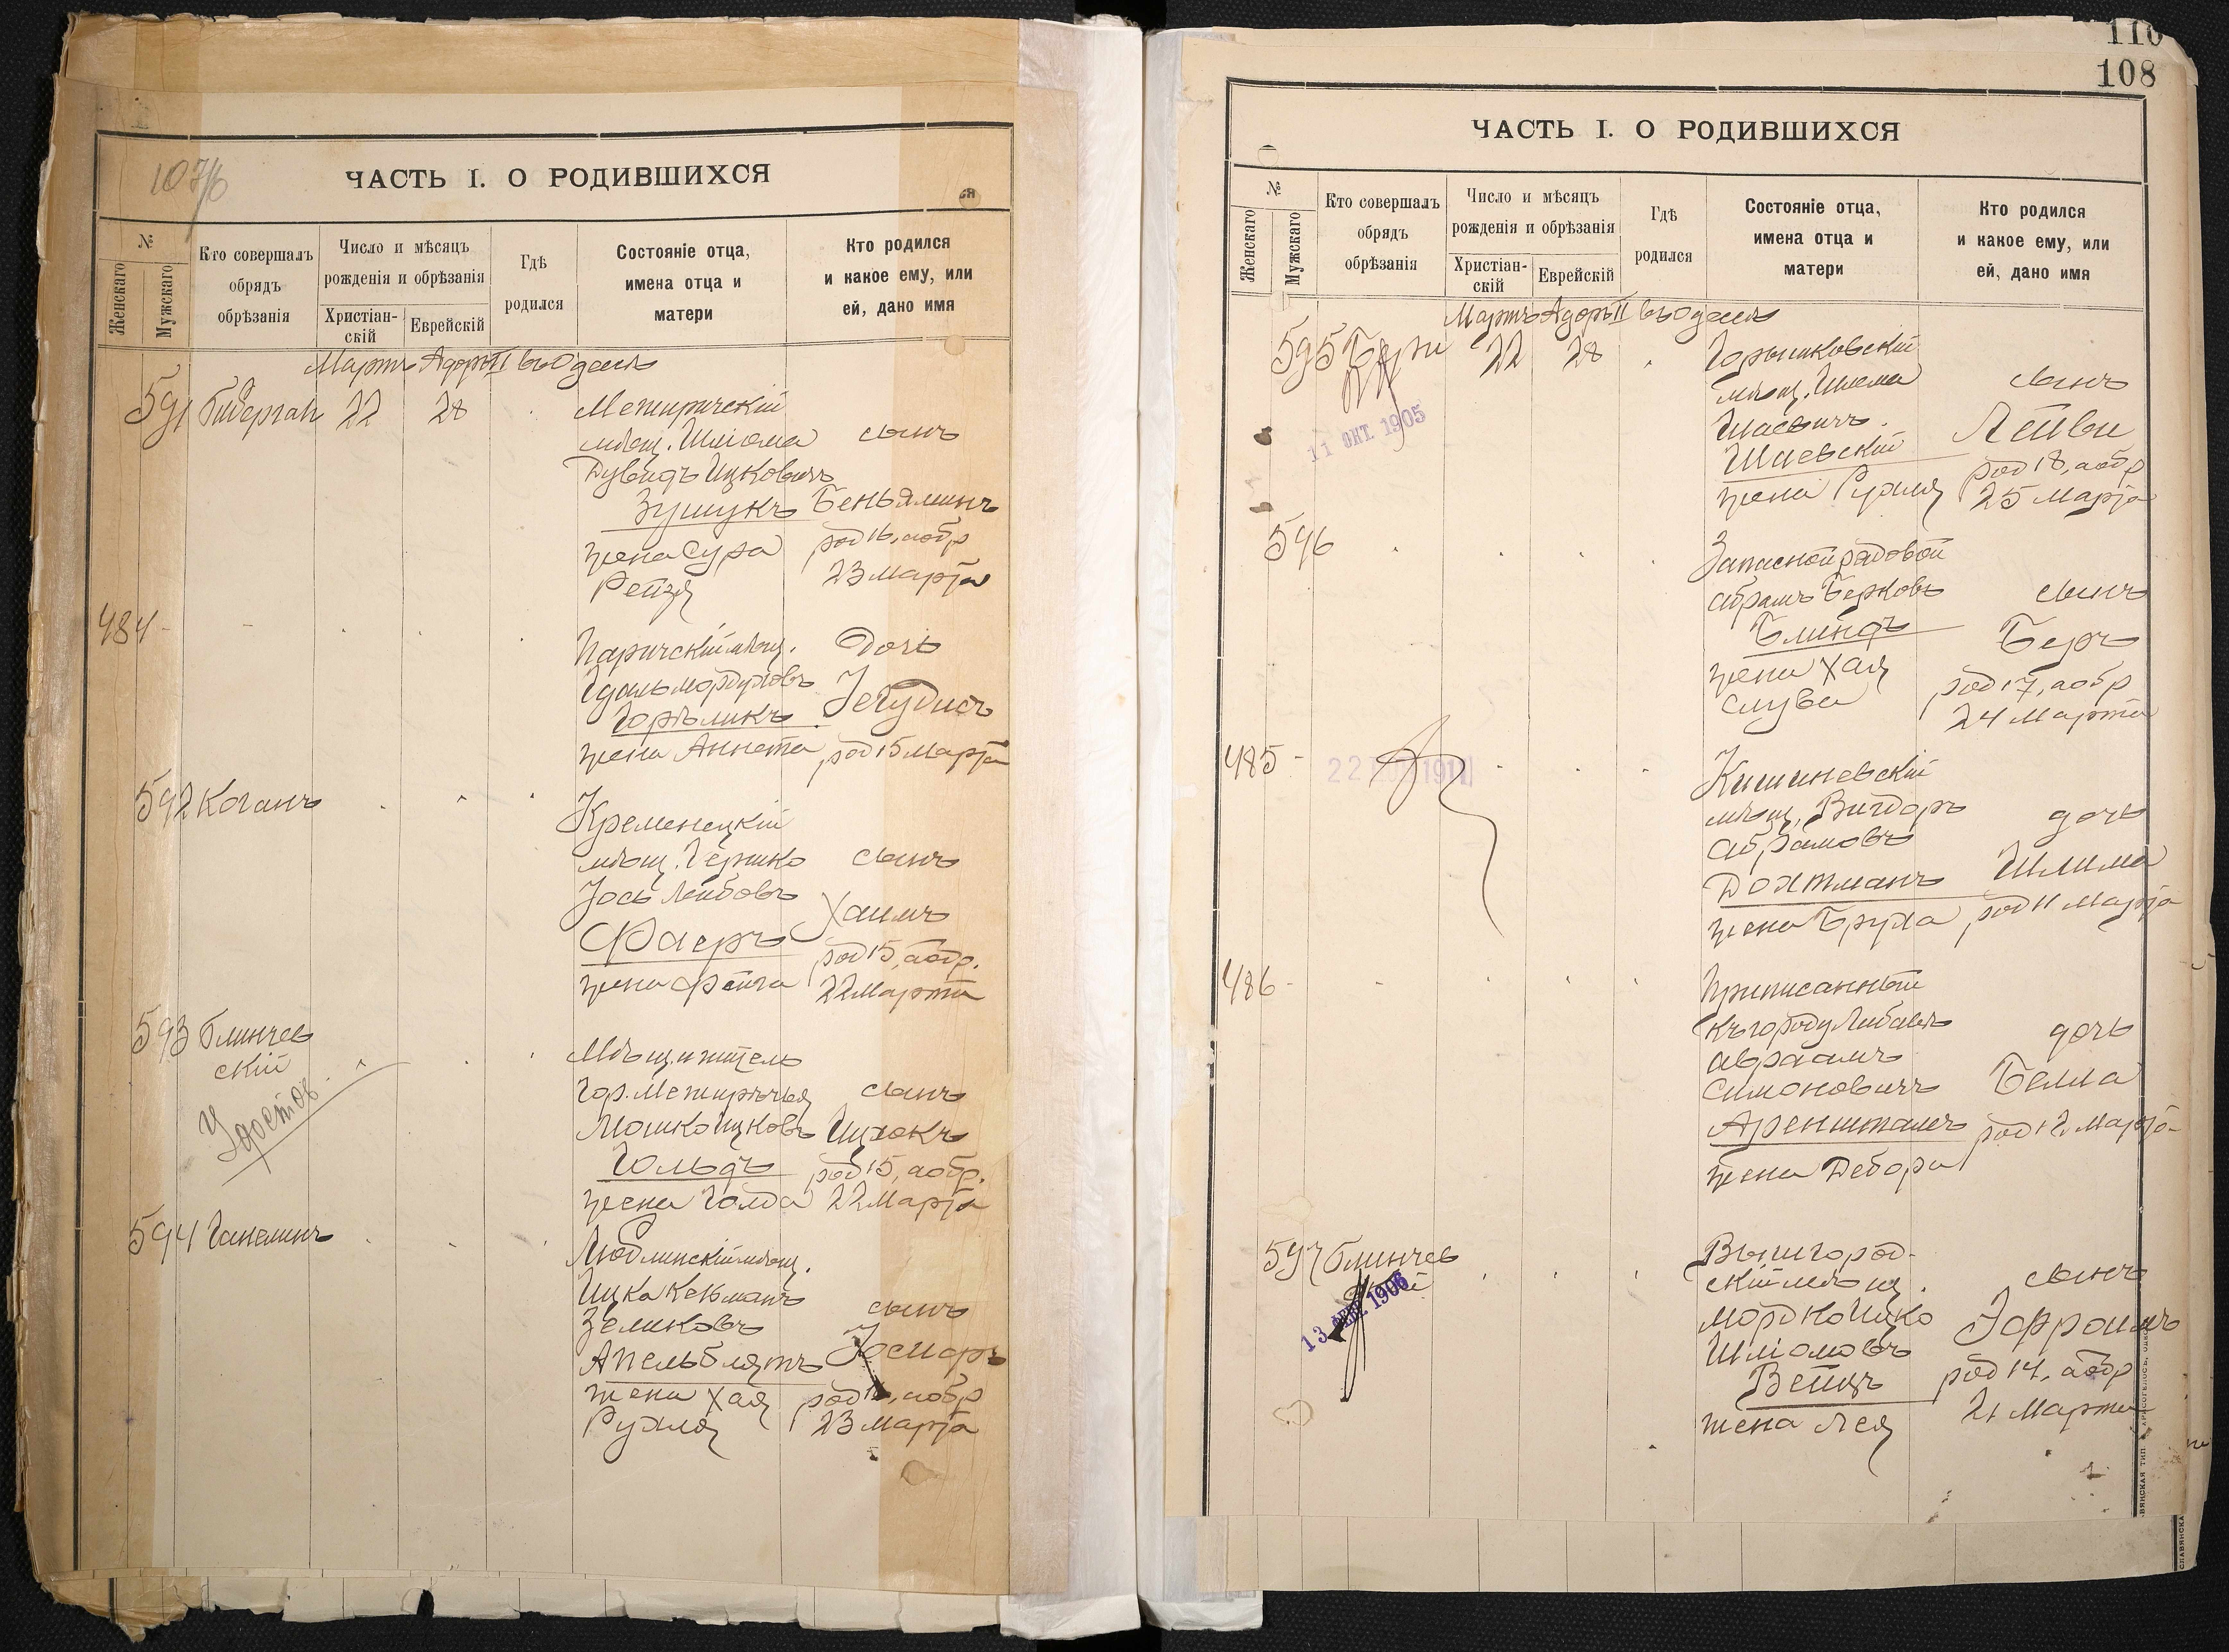 107/б
ЧАСТЬ I. О РОДИВШИХСЯ
ся
№
Женскаго
Мужскаго
Кто совершалъ
обрядъ
обрѣзанія
Число и мѣсяцъ
рожденія и обрѣзанія
Христіан-
скій
Еврейскій
Гдѣ
родился
Состояніе отца,
имена отца и
матери
Кто родился
и какое ему, или
ей, дано имя
Мартъ Адоръ II въ Одессѣ
591 22 28 Межиричскій
мѣщ. Шліома сынъ
Дувидъ Ицковичъ
Зушукъ Беньяминъ
жена Сура род 16, а обр
Рейзя 23 Марта
484 - Паричскій мѣщ. Дочь
Гдаль Мордуховъ Іегудисъ
Горѣликъ
жена Аннета род 15 Марта
592 Коганъ Кременецкій
мѣщ. Гершко сынъ
Іось Лейбовъ
Фаеръ Хаимъ
род 15, а обр.
жена Фейга 22 Марта
593 Блинчев
скій
Удостов.
Мѣщ. житель
гор. Межирѣчья сынъ
Мошко Ицковъ Ицхокъ
Гольдъ род 15, а обр.
жена Голда 22 Марта
594 Ганелинъ Люблинскій мѣщ.
Ицка Кельманъ
Зеликовъ сынъ
Апельблятъ
жена Хая род 16, а обр
Рухля 23 Марта
110
108
ЧАСТЬ I. О РОДИВШИХСЯ
№
Женскаго
Мужскаго
Кто совершалъ
обрядъ
обрѣзанія
Число и мѣсяцъ
рожденія и обрѣзанія
Христіан-
скій
Еврейскій
Гдѣ
родился
Состояніе отца,
имена отца и
матери
Кто родился
и какое ему, или
ей, дано имя
Мартъ Адоръ II въ Одессѣ
595 22 28
11 ОКТ. 1905
мѣщ. Шлема сынъ
Шаевичъ Лейви
Шаевскій род 18, а обр
жена Рухля 25 Марта
596 Запасной рядовой
Абрамъ Берковъ сынъ
Блиндъ Беръ
жена Хая род 17, а обр
Слува 24 Марта
485 - 22 1911 Кишиневскій
мѣщ. Вигдоръ дочь
Абрамовъ
Дохтманъ Шлима
жена Бруха род 11 Марта
486 - Приписанный
къ городу Либавѣ дочь
Авраамъ
Симоновичъ Белла
Аренштамъ род 12 Марта
жена Дебора
597 Блинчев
скій
13 ФЕВ. 1906
Вышгород-
скій мѣщ. сынъ
Мордко Ицко Іофроимъ
Шліомовъ
Вейцъ род 14, а обр
жена Лея 21 Марта